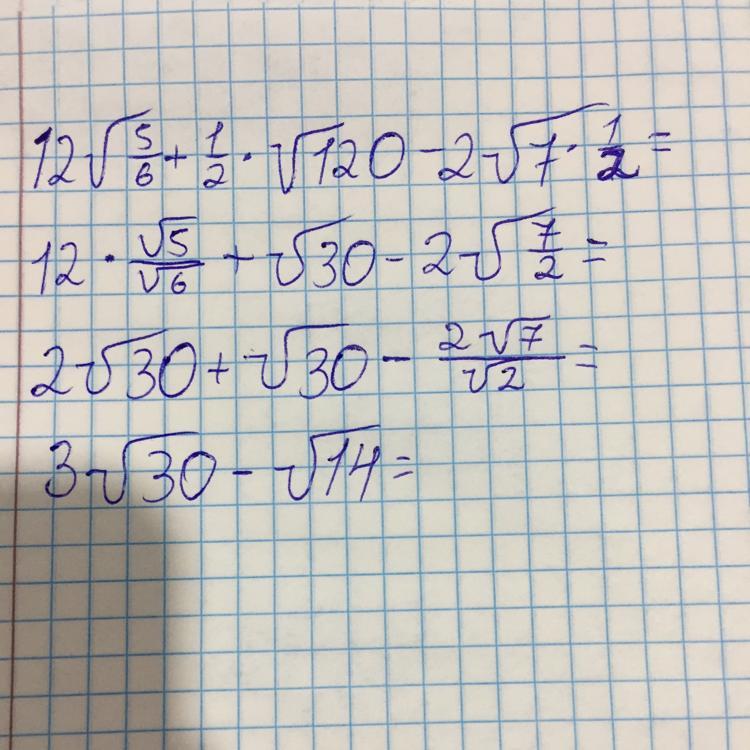 12√5/6 + 1/2 · √120 - 2√7 · 1/2 =
12 · √5/√6 + √30 - 2√7/2 =
2√30 + √30 - 2√7/√2 =
3√30 - √14 =